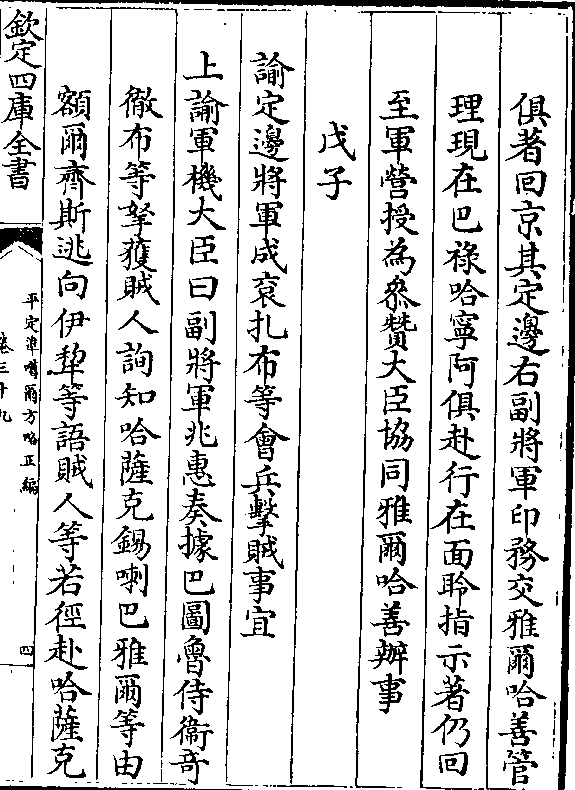 俱著回京其定邊右副將軍印務交雅爾哈善管
理現在巴祿哈寧阿俱赴行在面聆指示著仍回
至軍營授為叅贊大臣協同雅爾哈善辦事
戊子
諭定邊將軍成袞扎布等會兵擊賊事宜
上諭軍機大臣曰副將軍兆惠奏據巴圖魯侍衛竒
徹布等拏獲賊人詢知哈薩克錫喇巴雅爾等由
額爾齊斯逃向伊犂等語賊人等若徑赴哈薩克
欽定四庫全書
平定準噶爾方略正編
卷三十九
四